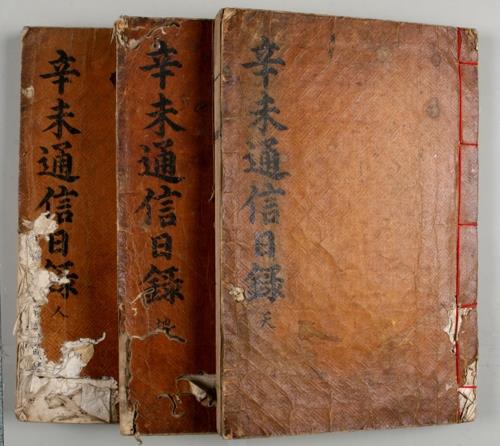 辛未通信日錄 人
辛未通信日錄 地
辛未通信日錄 天